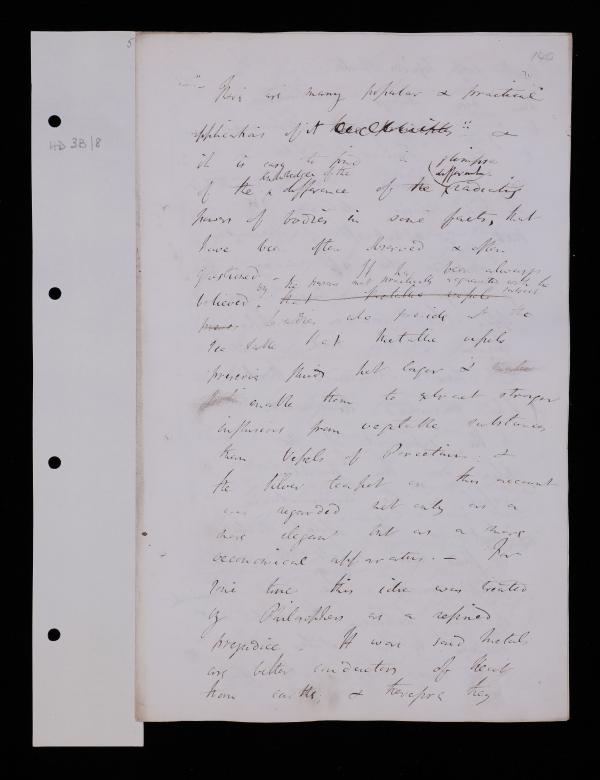 5
140
HD 3B/8
"- There are many popular & practical
applications of it &
it is easy to find in glimpse
knowledge of the difference
of the x difference of the radiating
powers of bodies in some facts, that
have been often observed & often
questioned It has been always
by the persons not previously acquainted with the subject
believed that metallic vessels
Ladies who preside at the
Tea table that metallic vessels
preserve fluids hot longer &
enable them to extract stronger
infusions from vegetable substances
than Vessels of Porcelain. &
the Silver teapot on this account
was regarded not only as a
more elegant but as a more
oeconomical apparatus. — For
some time this idea was treated
by Philosophers as a refined
prejudice. It was said Metals
are better conductors of Heat
than earths, & therefore they